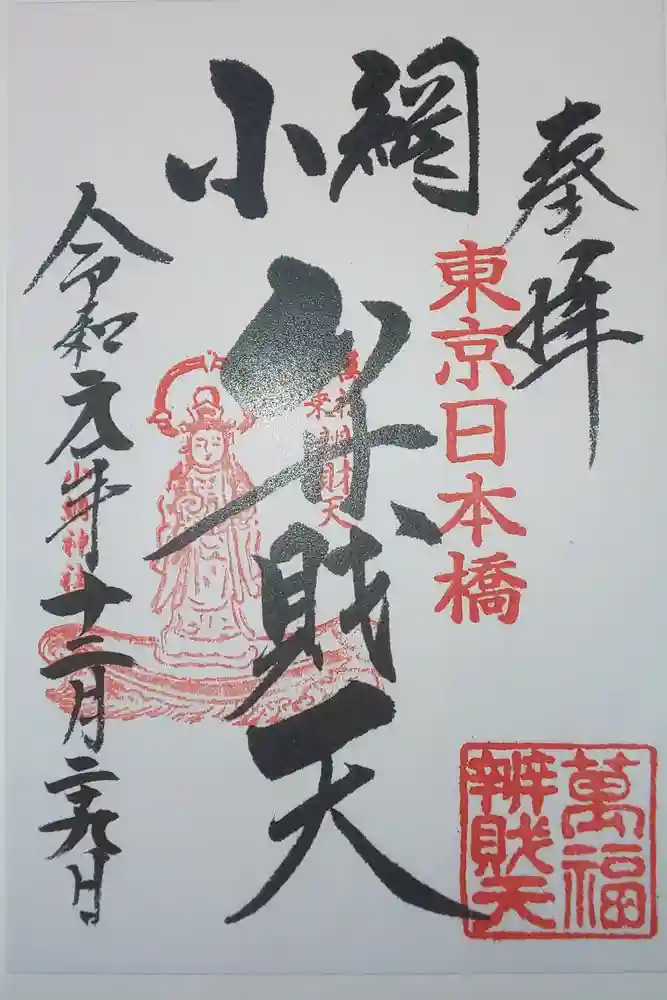 奉拝
東京日本橋
小網
弁財天
令和元年十二月二十九日
小網神社
萬福
辨財天